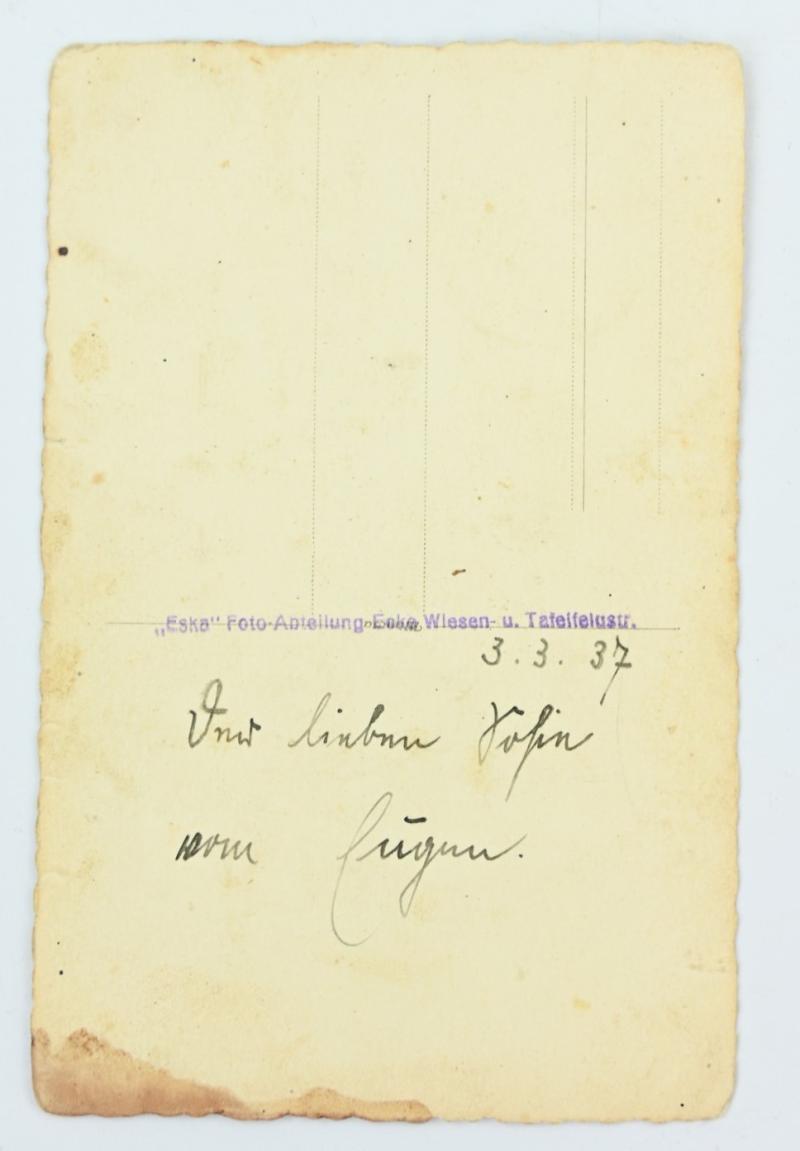 „Eska" Foto-Abteilung Ecke Wiesen- u. Tafelfeldstr.
3. 3. 37
Der lieben Sofie
vom Eugen.